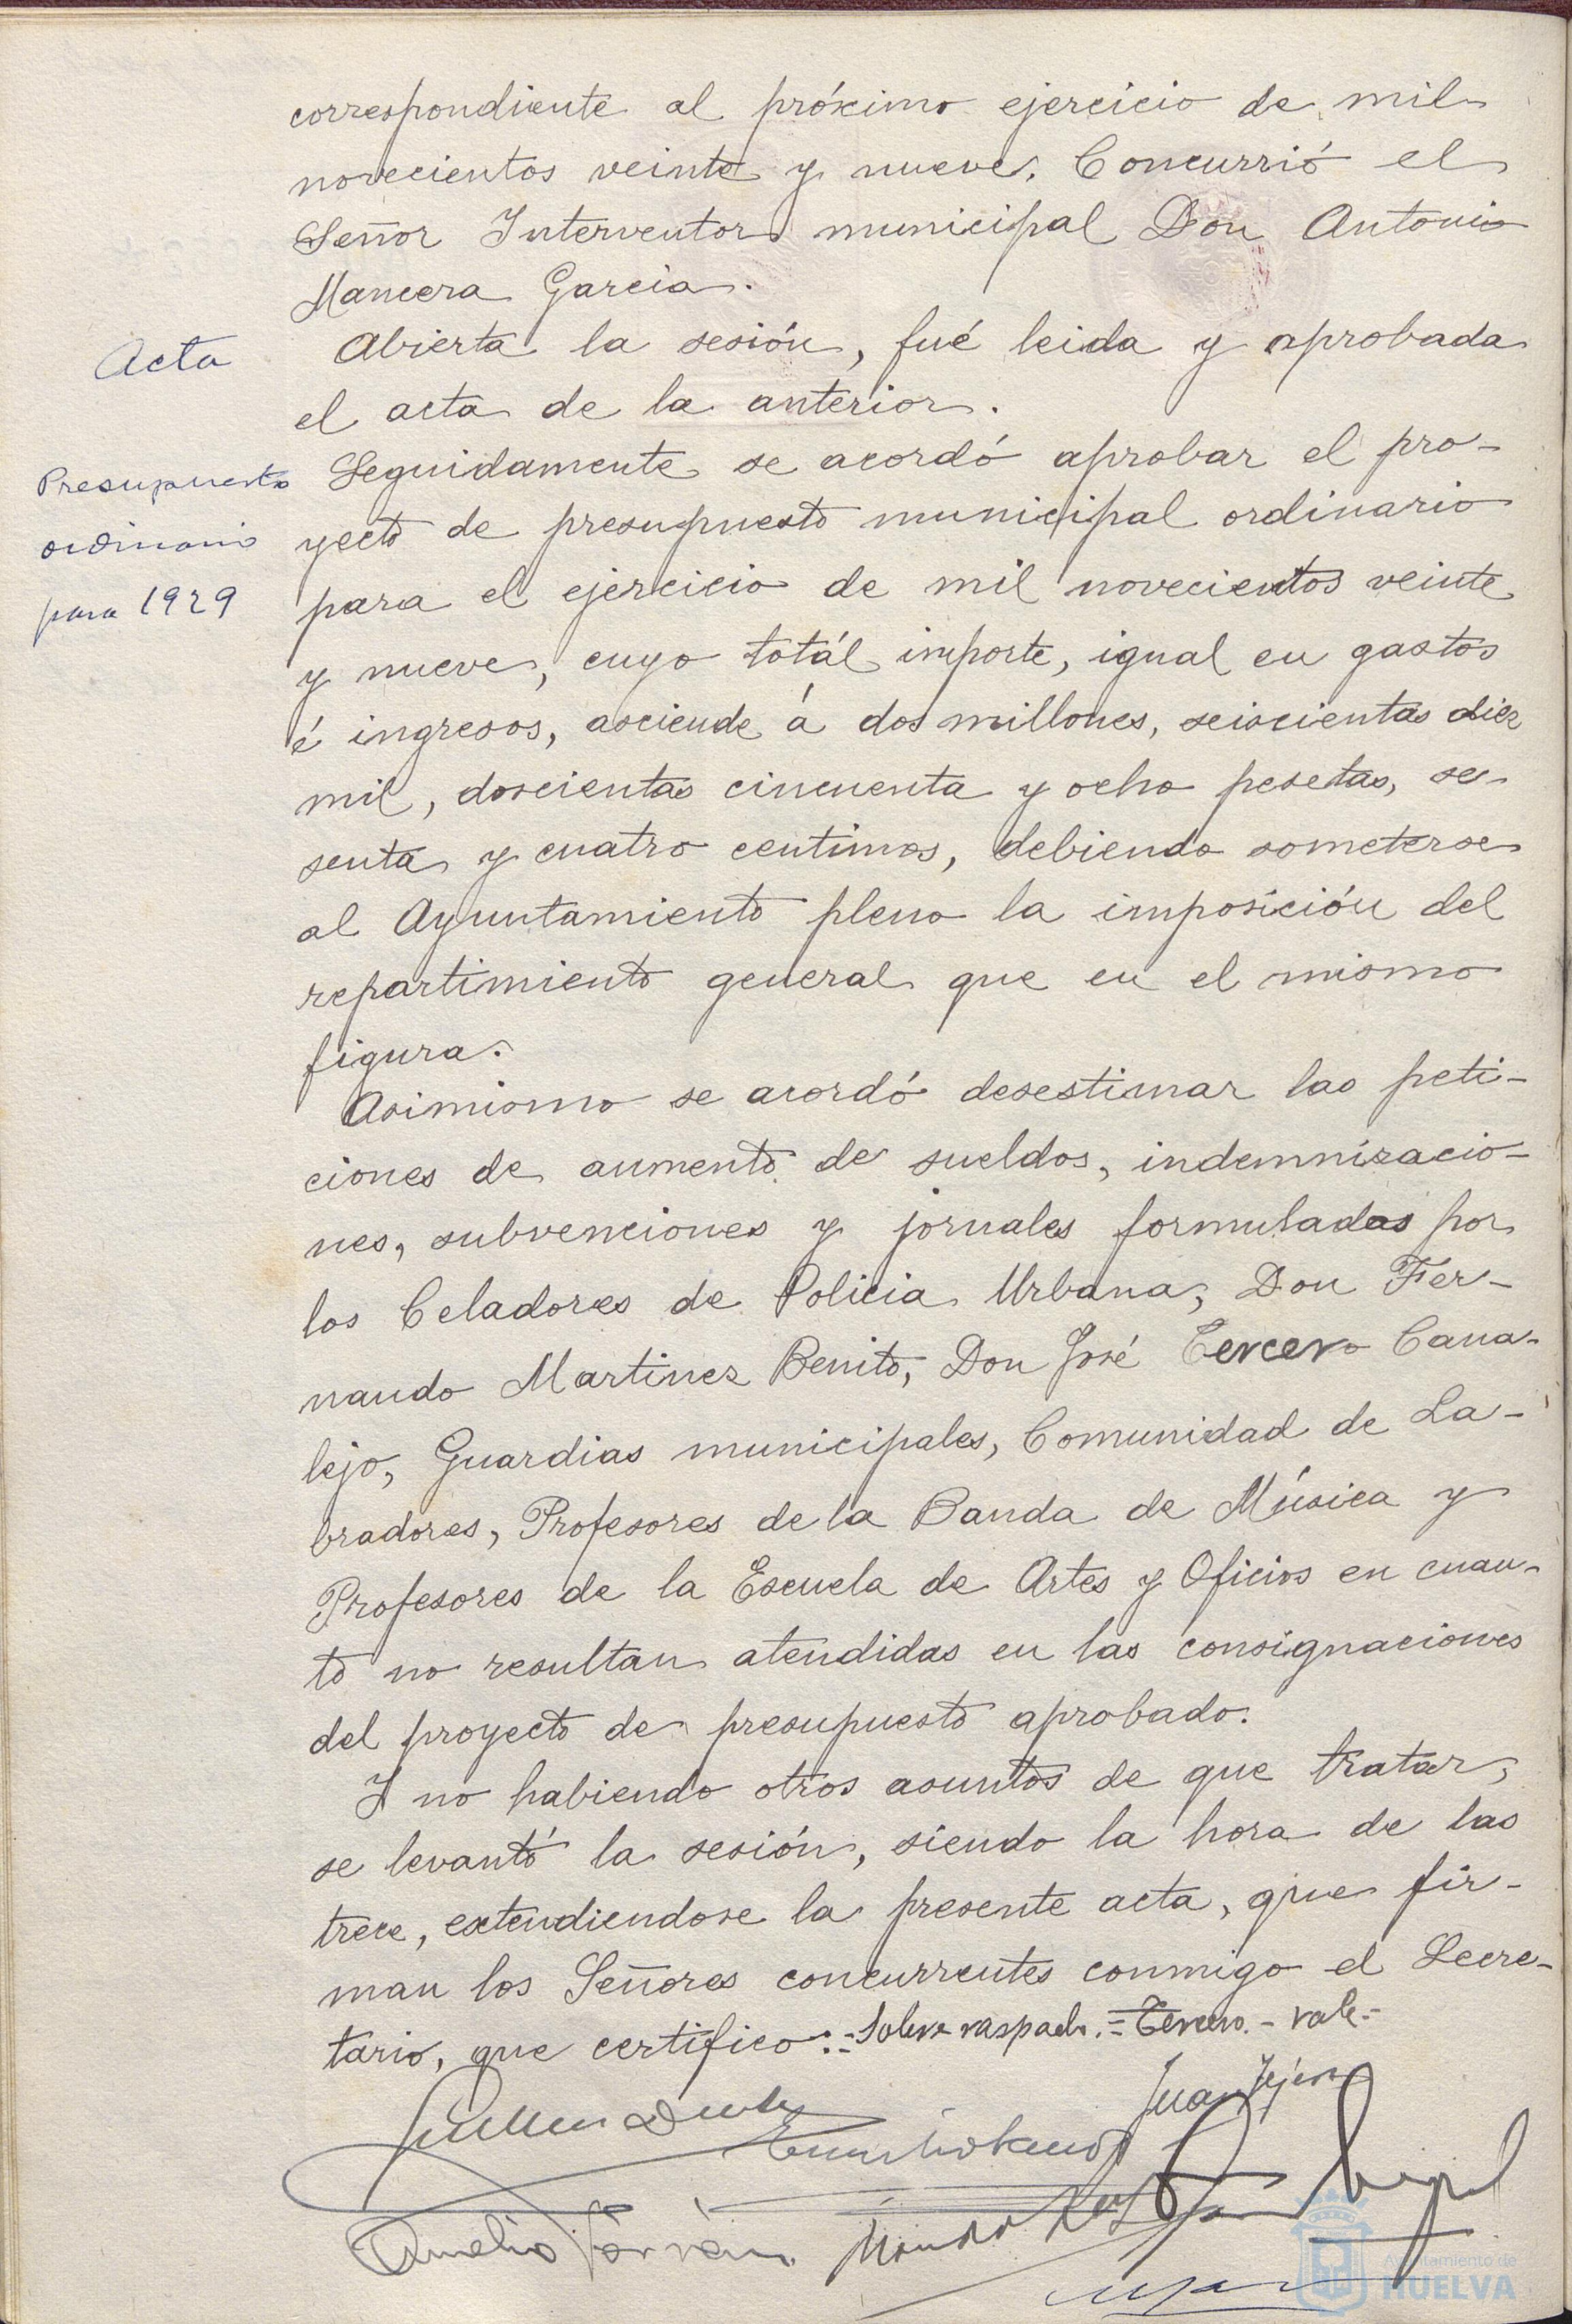 correspondiente al próximo ejercicio de mil
novecientos veinte y nueve. Concurrió el
Señor Interventor municipal Don Antonio
Mancera Garcia.
Acta
Abierta la sesión, fué leida y aprobada
el acta de la anterior.
Presupuesto
ordinario
para 1929
Seguidamente se acordó aprobar el pro-
yecto de presupuesto municipal ordinario
para el ejercicio de mil novecientos veinte
y nueve, cuyo totál importe, igual en gastos
é ingresos, asciende á dos millones, seiscientas diez
mil, doscientas cincuenta y ocho pesetas, se-
senta y cuatro centimos, debiendo someterse
al Ayuntamiento pleno la imposición del
repartimiento general que en el mismo
figura.
Asimismo se acordó desestimar las peti-
ciones de aumento de sueldos, indemnizacio-
nes, subvenciones y jornales formuladas por
los Celadores de Policia Urbana, Don Fer-
nando Martinez Benito, Don José Tercero Cana-
lejo, Guardias municipales, Comunidad de La-
bradores, Profesores de la Banda de Música y
Profesores de la Escuela de Artes y Oficios en cuan-
to no resultan atendidas en las consignaciones
del proyecto de presupuesto aprobado.
Y no habiendo otros asuntos de que tratar,
se levantó la sesión, siendo la hora de las
trece, extendiendose la presente acta, que fir-
man los Señores concurrentes conmigo el Secre-
tario, que certifico:=Sobre raspado.=Tercero.-vale-
Juan
Ayuntamiento de
HUELVA